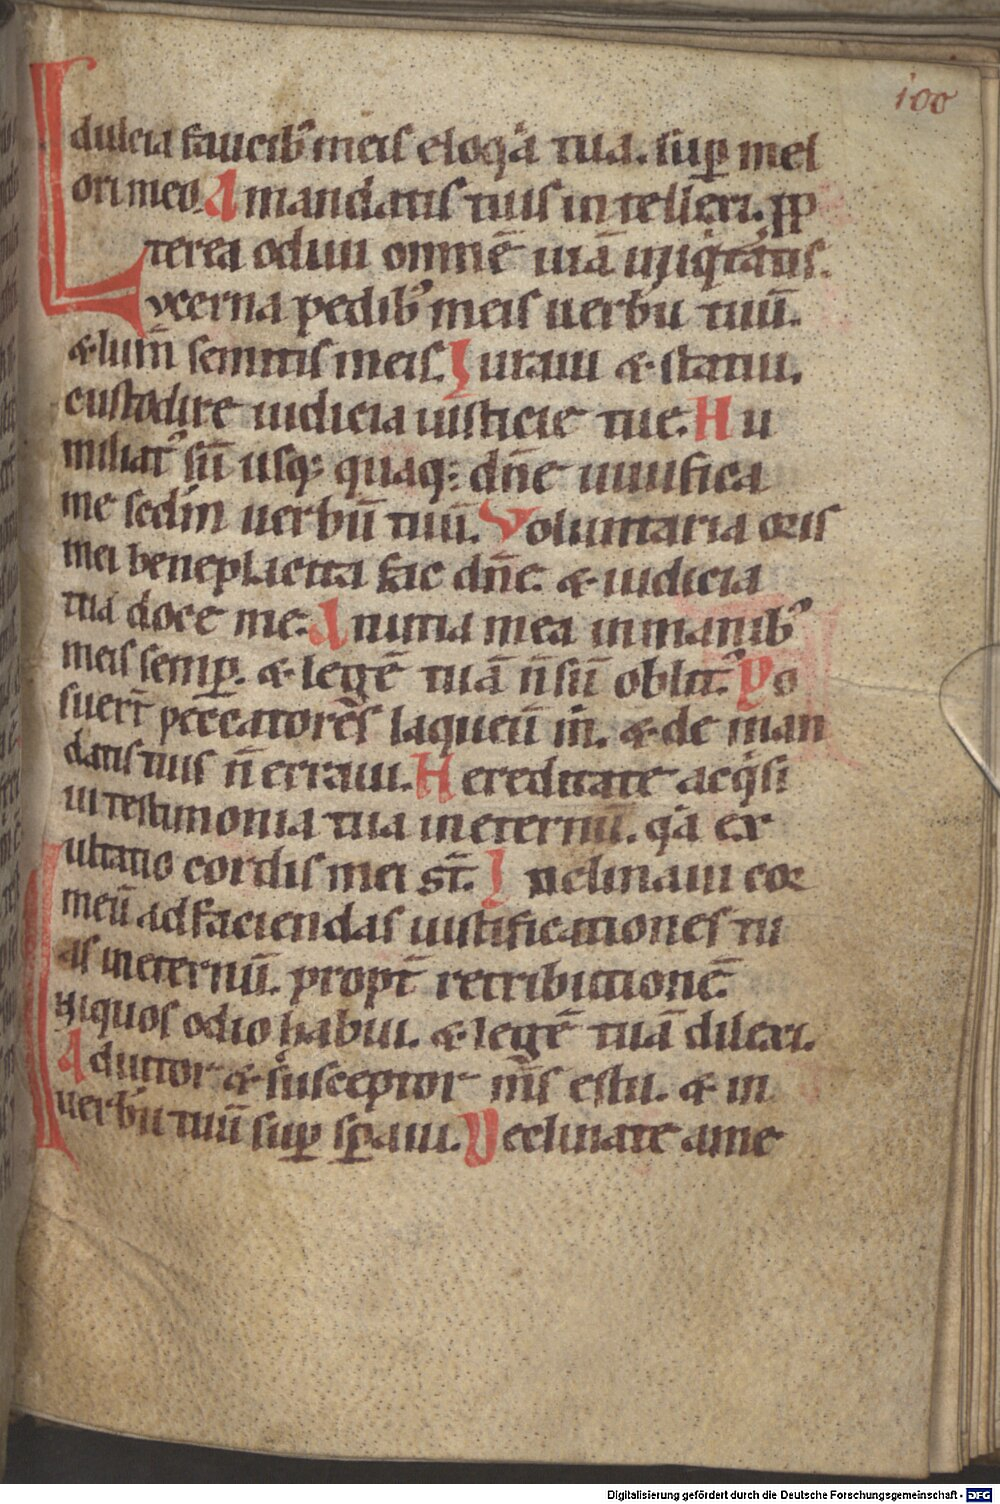 100
dulcia faucib᾽ meis eloqͣa tua. suꝑ mel
ori meo. A mandatis tuis intellexi. ꝓp
terea odiui omnē uiā iniqͥtatis.
Lucerna pedib᾽ meis uerbū tuū.
& lum̄ semitis meis. Iuraui & statui.
custodire iudicia iusticie tue. Hu
miliat᾽ sū usq; quaq; dn̄e uiuifica
me sedm̄ uerbū tuū. Voluntaria oris
mei beneplacita fac dn̄e. & iudicia
tua doce me. Anima mea in manib᾽
meis semꝑ. & legē tuā n̄ sū oblit᾽. Po
suer̄t peccatores laqueū m̄. & de man
datis tuis n̄ erraui. Hereditate acqͥsi
ui testimonia tua in eternū. qͣa ex
ultatio cordis mei st̄. Inclinaui cor
meū ad faciendas iustificationes tu
as in eternū. propt̄ retributionē.
Iniquos odio habui. & legē tuā dilexi.
Adiutor & susceptor m̄s es tu. & in
uerbū tuū suꝑ sꝑaui. Declinate a me
Digitalisierung gefördert durch die Deutsche Forschungsgemeinschaft - DFG